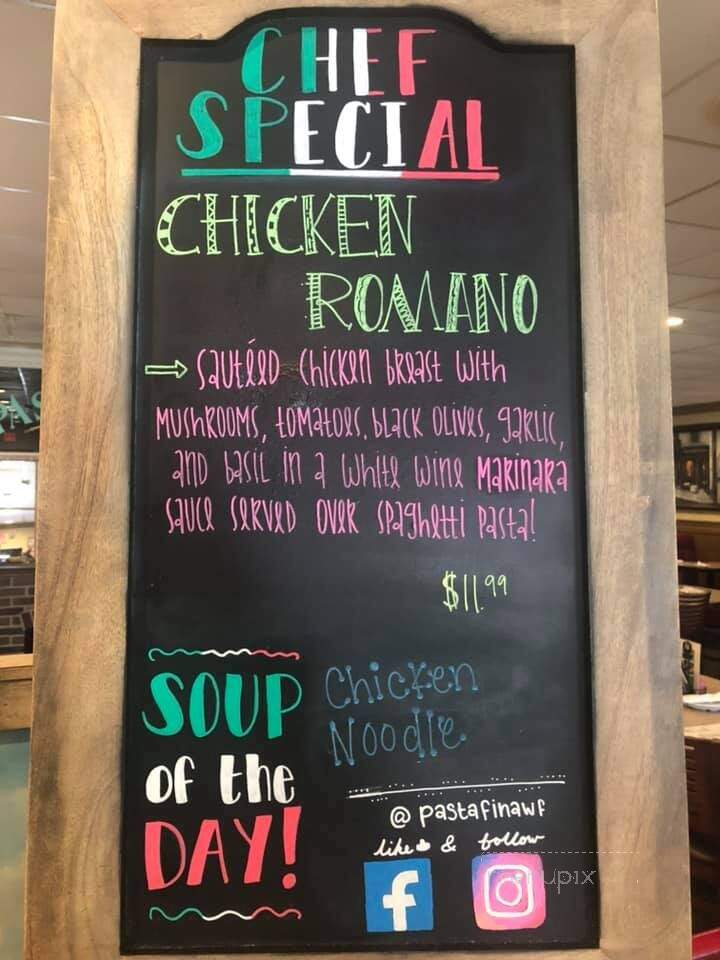 CHEF
SPECIAL
CHICKEN
ROMANO
Sautéed chicken breast with
Mushrooms, tomatoes, black olives, garlic,
and basil in a white wine Marinara
sauce served over spaghetti pasta!
$11.99
SOUP
of the
DAY!
Chicken
Noodle
@ pastafinawf
like & follow
f
upix
PAS